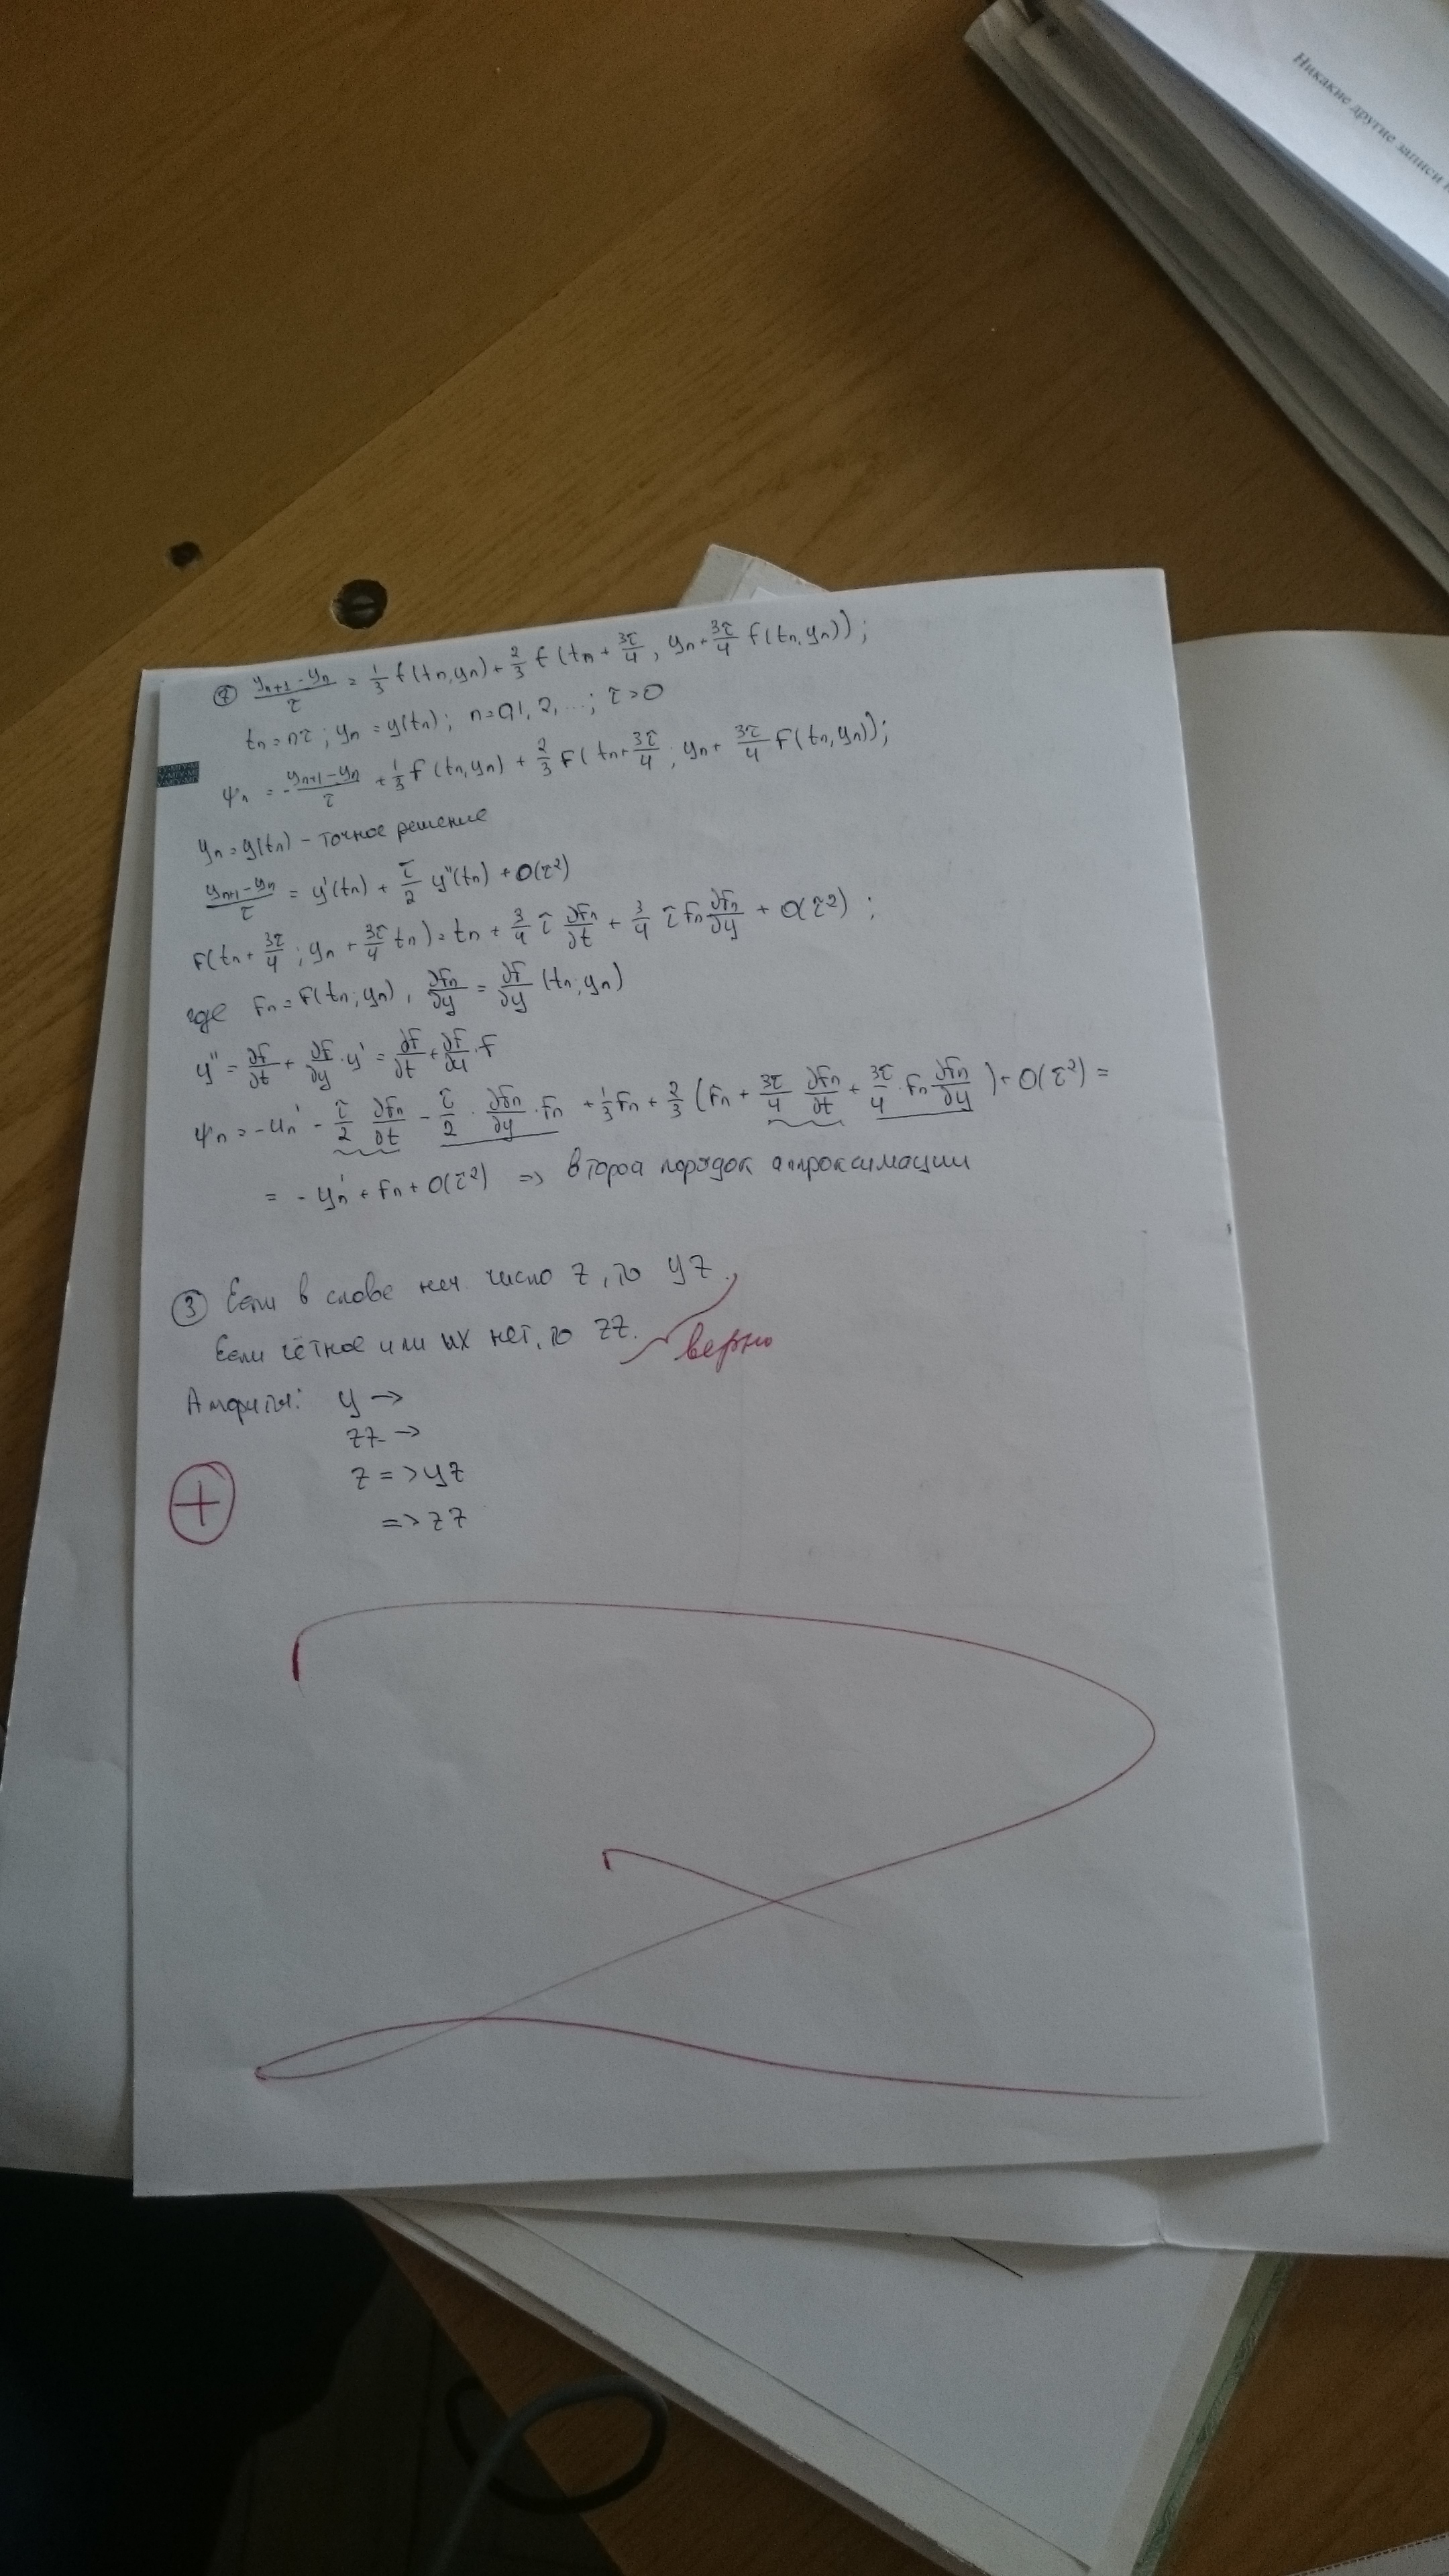 Никакие другие записи
⑦ (y_{n+1} - y_n)/τ = 1/3 f(t_n, y_n) + 2/3 f(t_n + 3τ/4, y_n + 3τ/4 f(t_n, y_n));
t_n = nτ; y_n = y(t_n); n = 0,1, 2, ...; τ > 0
ψ_n = -(y_{n+1} - y_n)/τ + 1/3 f(t_n, y_n) + 2/3 f(t_n + 3τ/4; y_n + 3τ/4 f(t_n, y_n));
y_n = y(t_n) - точное решение
(y_{n+1} - y_n)/τ = y'(t_n) + τ/2 y''(t_n) + O(τ²)
f(t_n + 3τ/4; y_n + 3τ/4 t_n) = t_n + 3/4 τ ∂f_n/∂t + 3/4 τ f_n ∂f_n/∂y + O(τ²);
где f_n = f(t_n; y_n), ∂f_n/∂y = ∂f/∂y (t_n; y_n)
y'' = ∂f/∂t + ∂f/∂y · y' = ∂f/∂t + ∂f/∂y · f
ψ_n = -u_n' - τ/2 ∂f_n/∂t - τ/2 · ∂f_n/∂y · f_n + 1/3 f_n + 2/3 (f_n + 3τ/4 ∂f_n/∂t + 3τ/4 · f_n ∂f_n/∂y) + O(τ²) =
= - y_n' + f_n + O(τ²) => второй порядок аппроксимации
③ Если в слове неч число z, то yz
Если чётное или их нет, то zz.
верно
Алфиты: y →
zz →
z => yz
=> zz
+